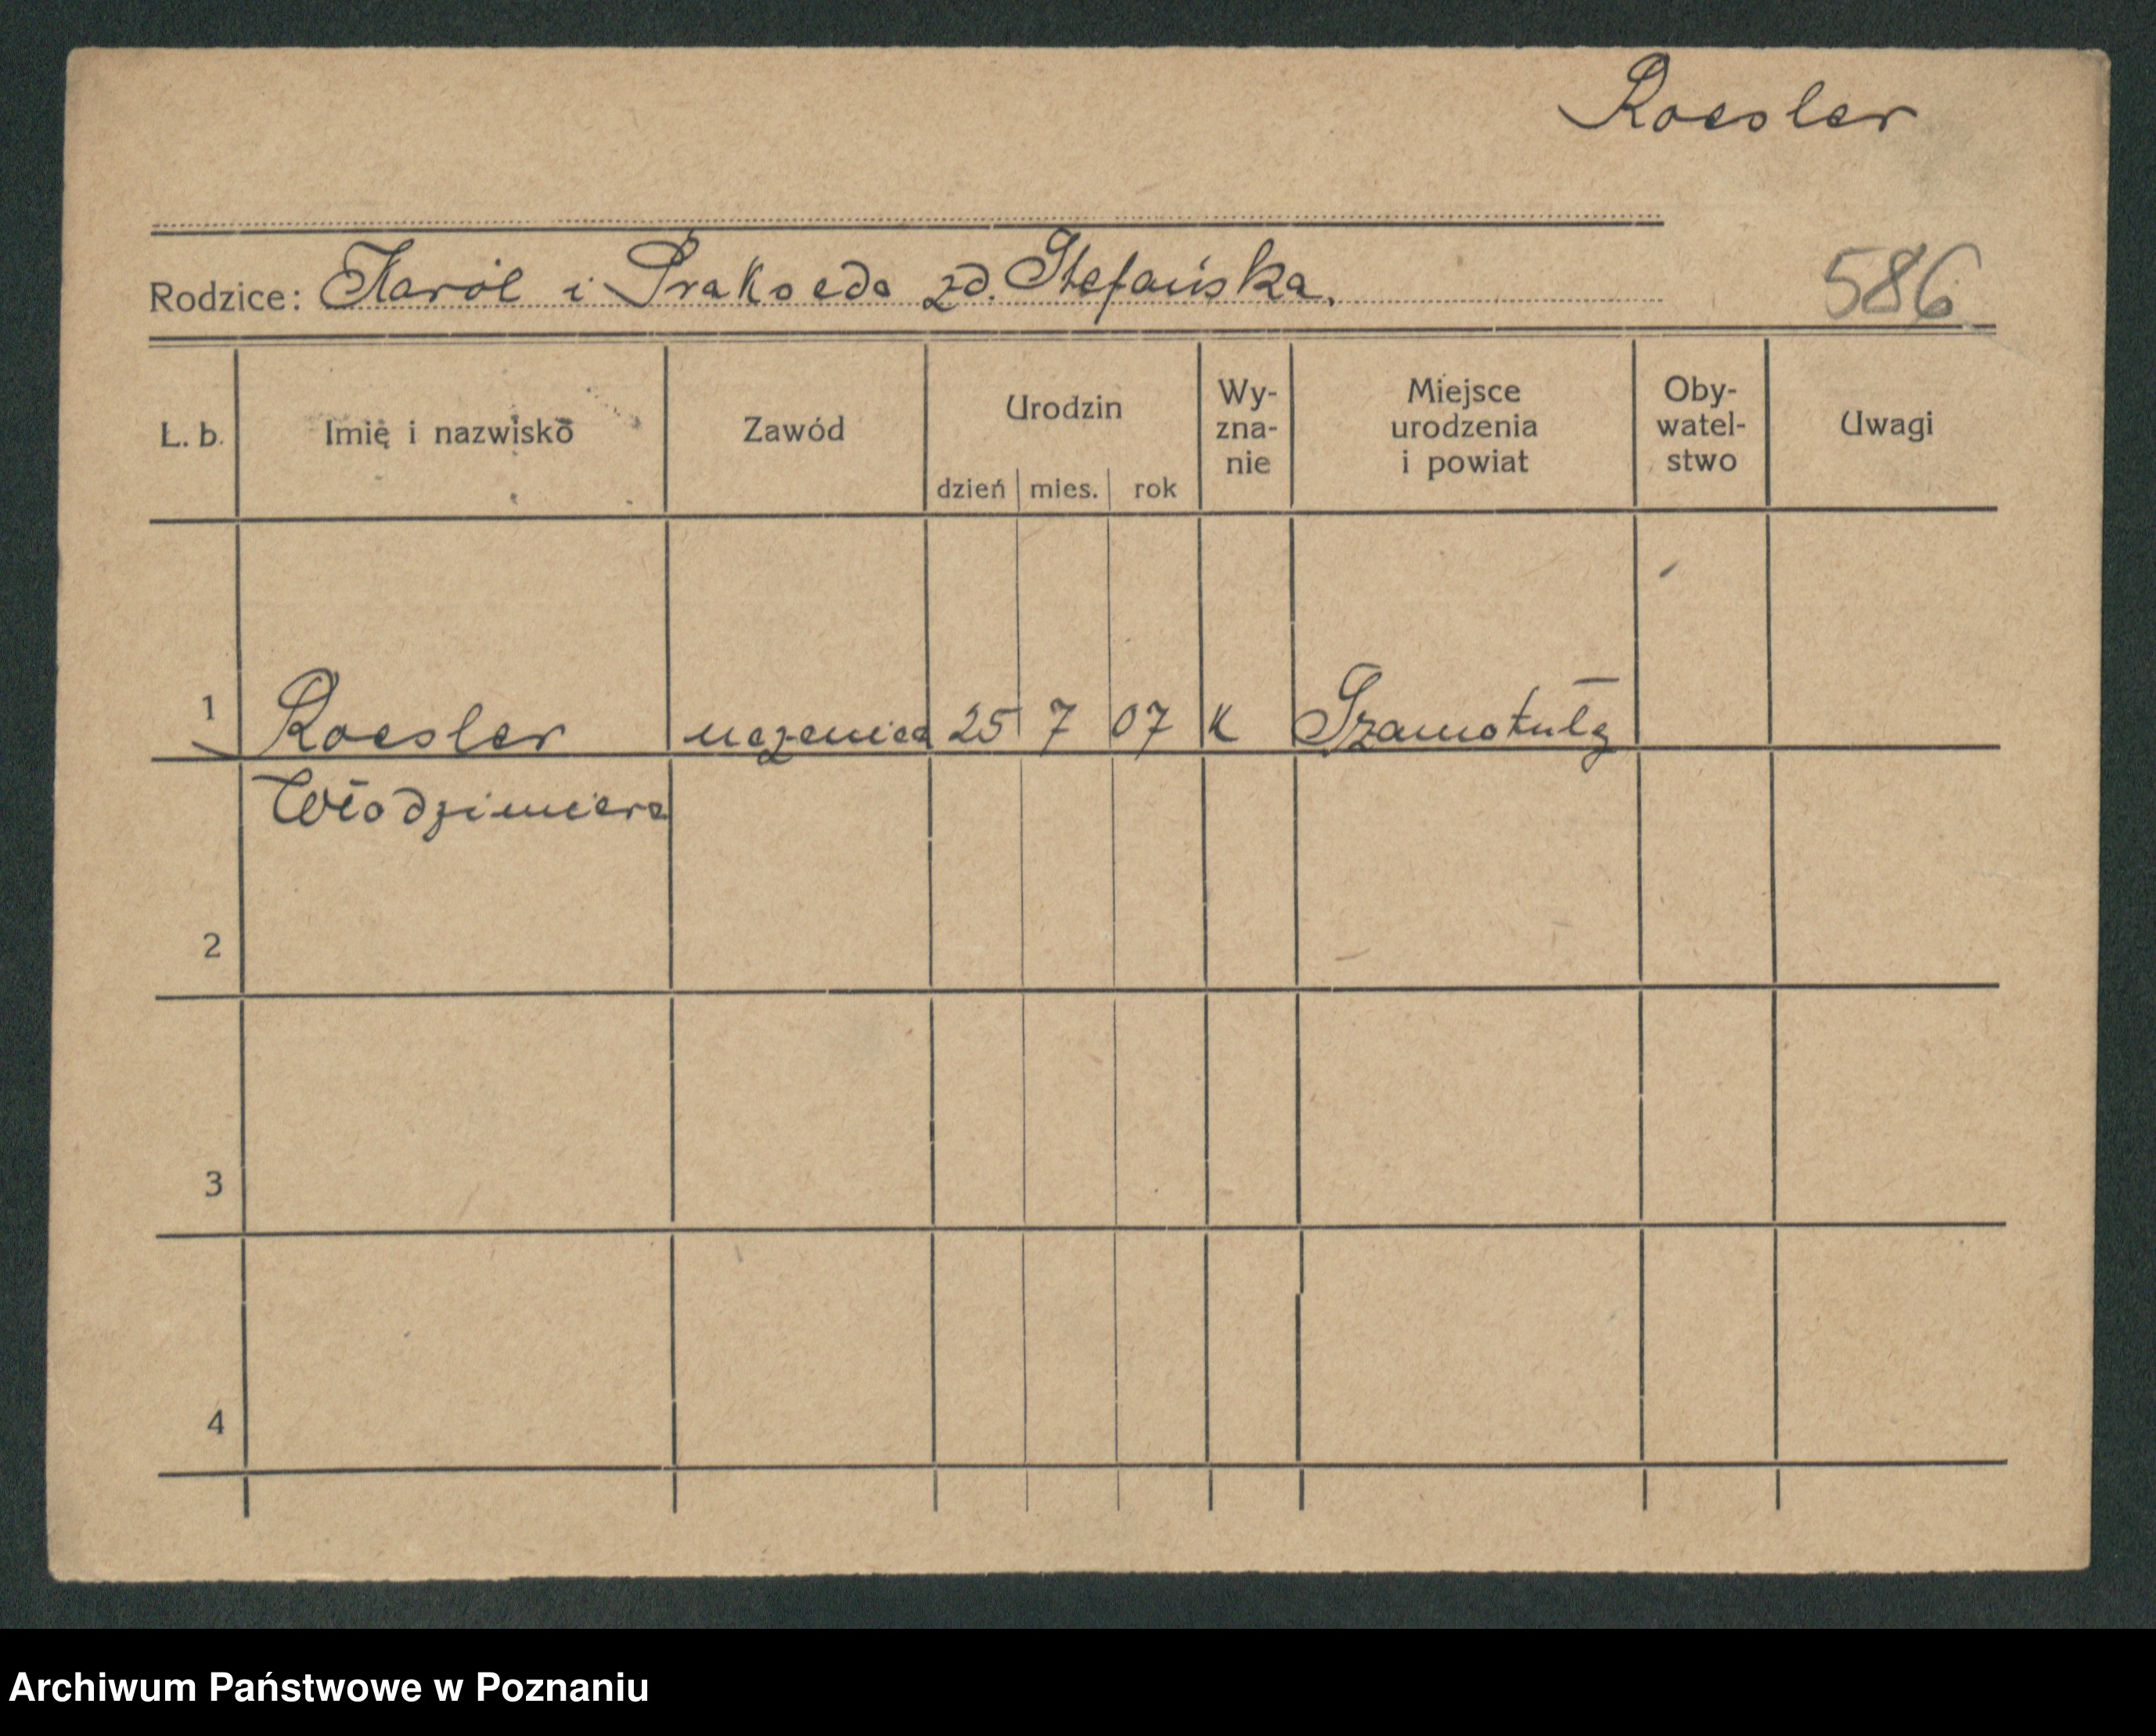 Roesler
Rodzice: Karól i Prakseda zd. Stefańska.
586
L. b.
Imię i nazwisko
Zawód
Urodzin
dzień mies. rok
Wy-
zna-
nie
Miejsce
urodzenia
i powiat
Oby-
watel-
stwo
Uwagi
1 Roesler uczenica 25 7 07 K Szamotuły
Włodzimiera
2
3
4
Archiwum Państwowe w Poznaniu